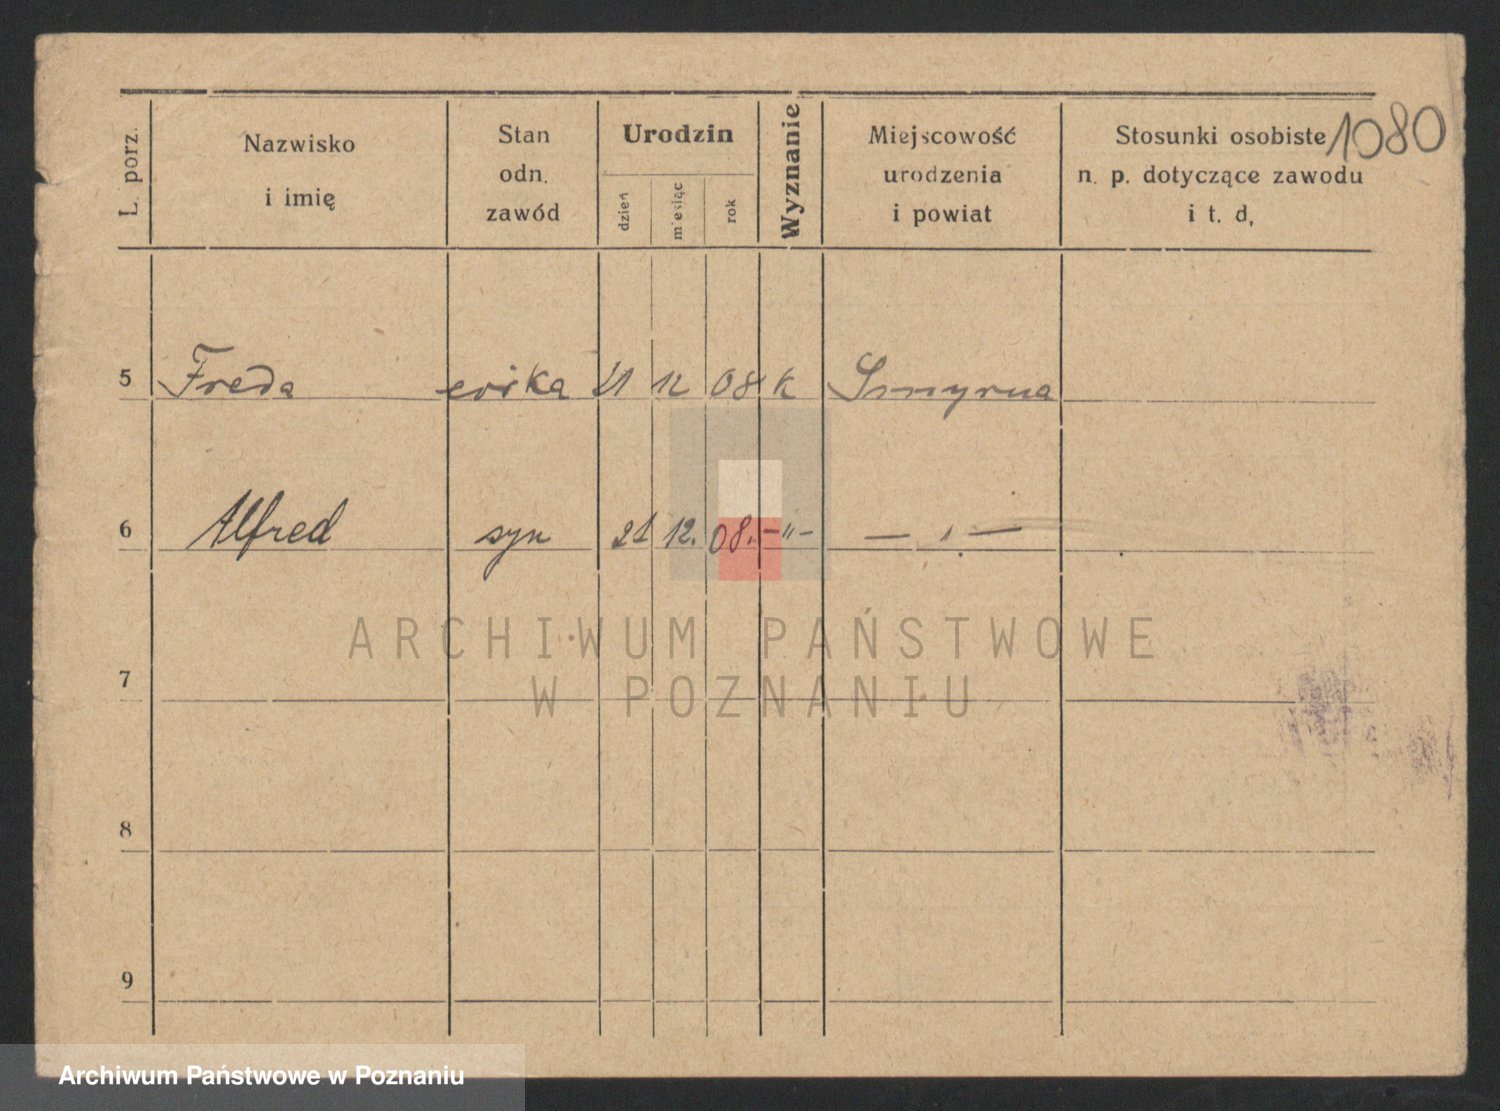 1080
L. porz.
Nazwisko
i imię
Stan
odn.
zawód
Urodzin
dzień
miesiąc
rok
Wyznanie
Miejscowość
urodzenia
i powiat
Stosunki osobiste
n. p. dotyczące zawodu
i t. d,
5 Freda 21 12 08 k Smyrna
6 Alfred syn 21 12. 08. –„– – „ –
7
8
9
ARCHIWUM PAŃSTWOWE
W POZNANIU
Archiwum Państwowe w Poznaniu